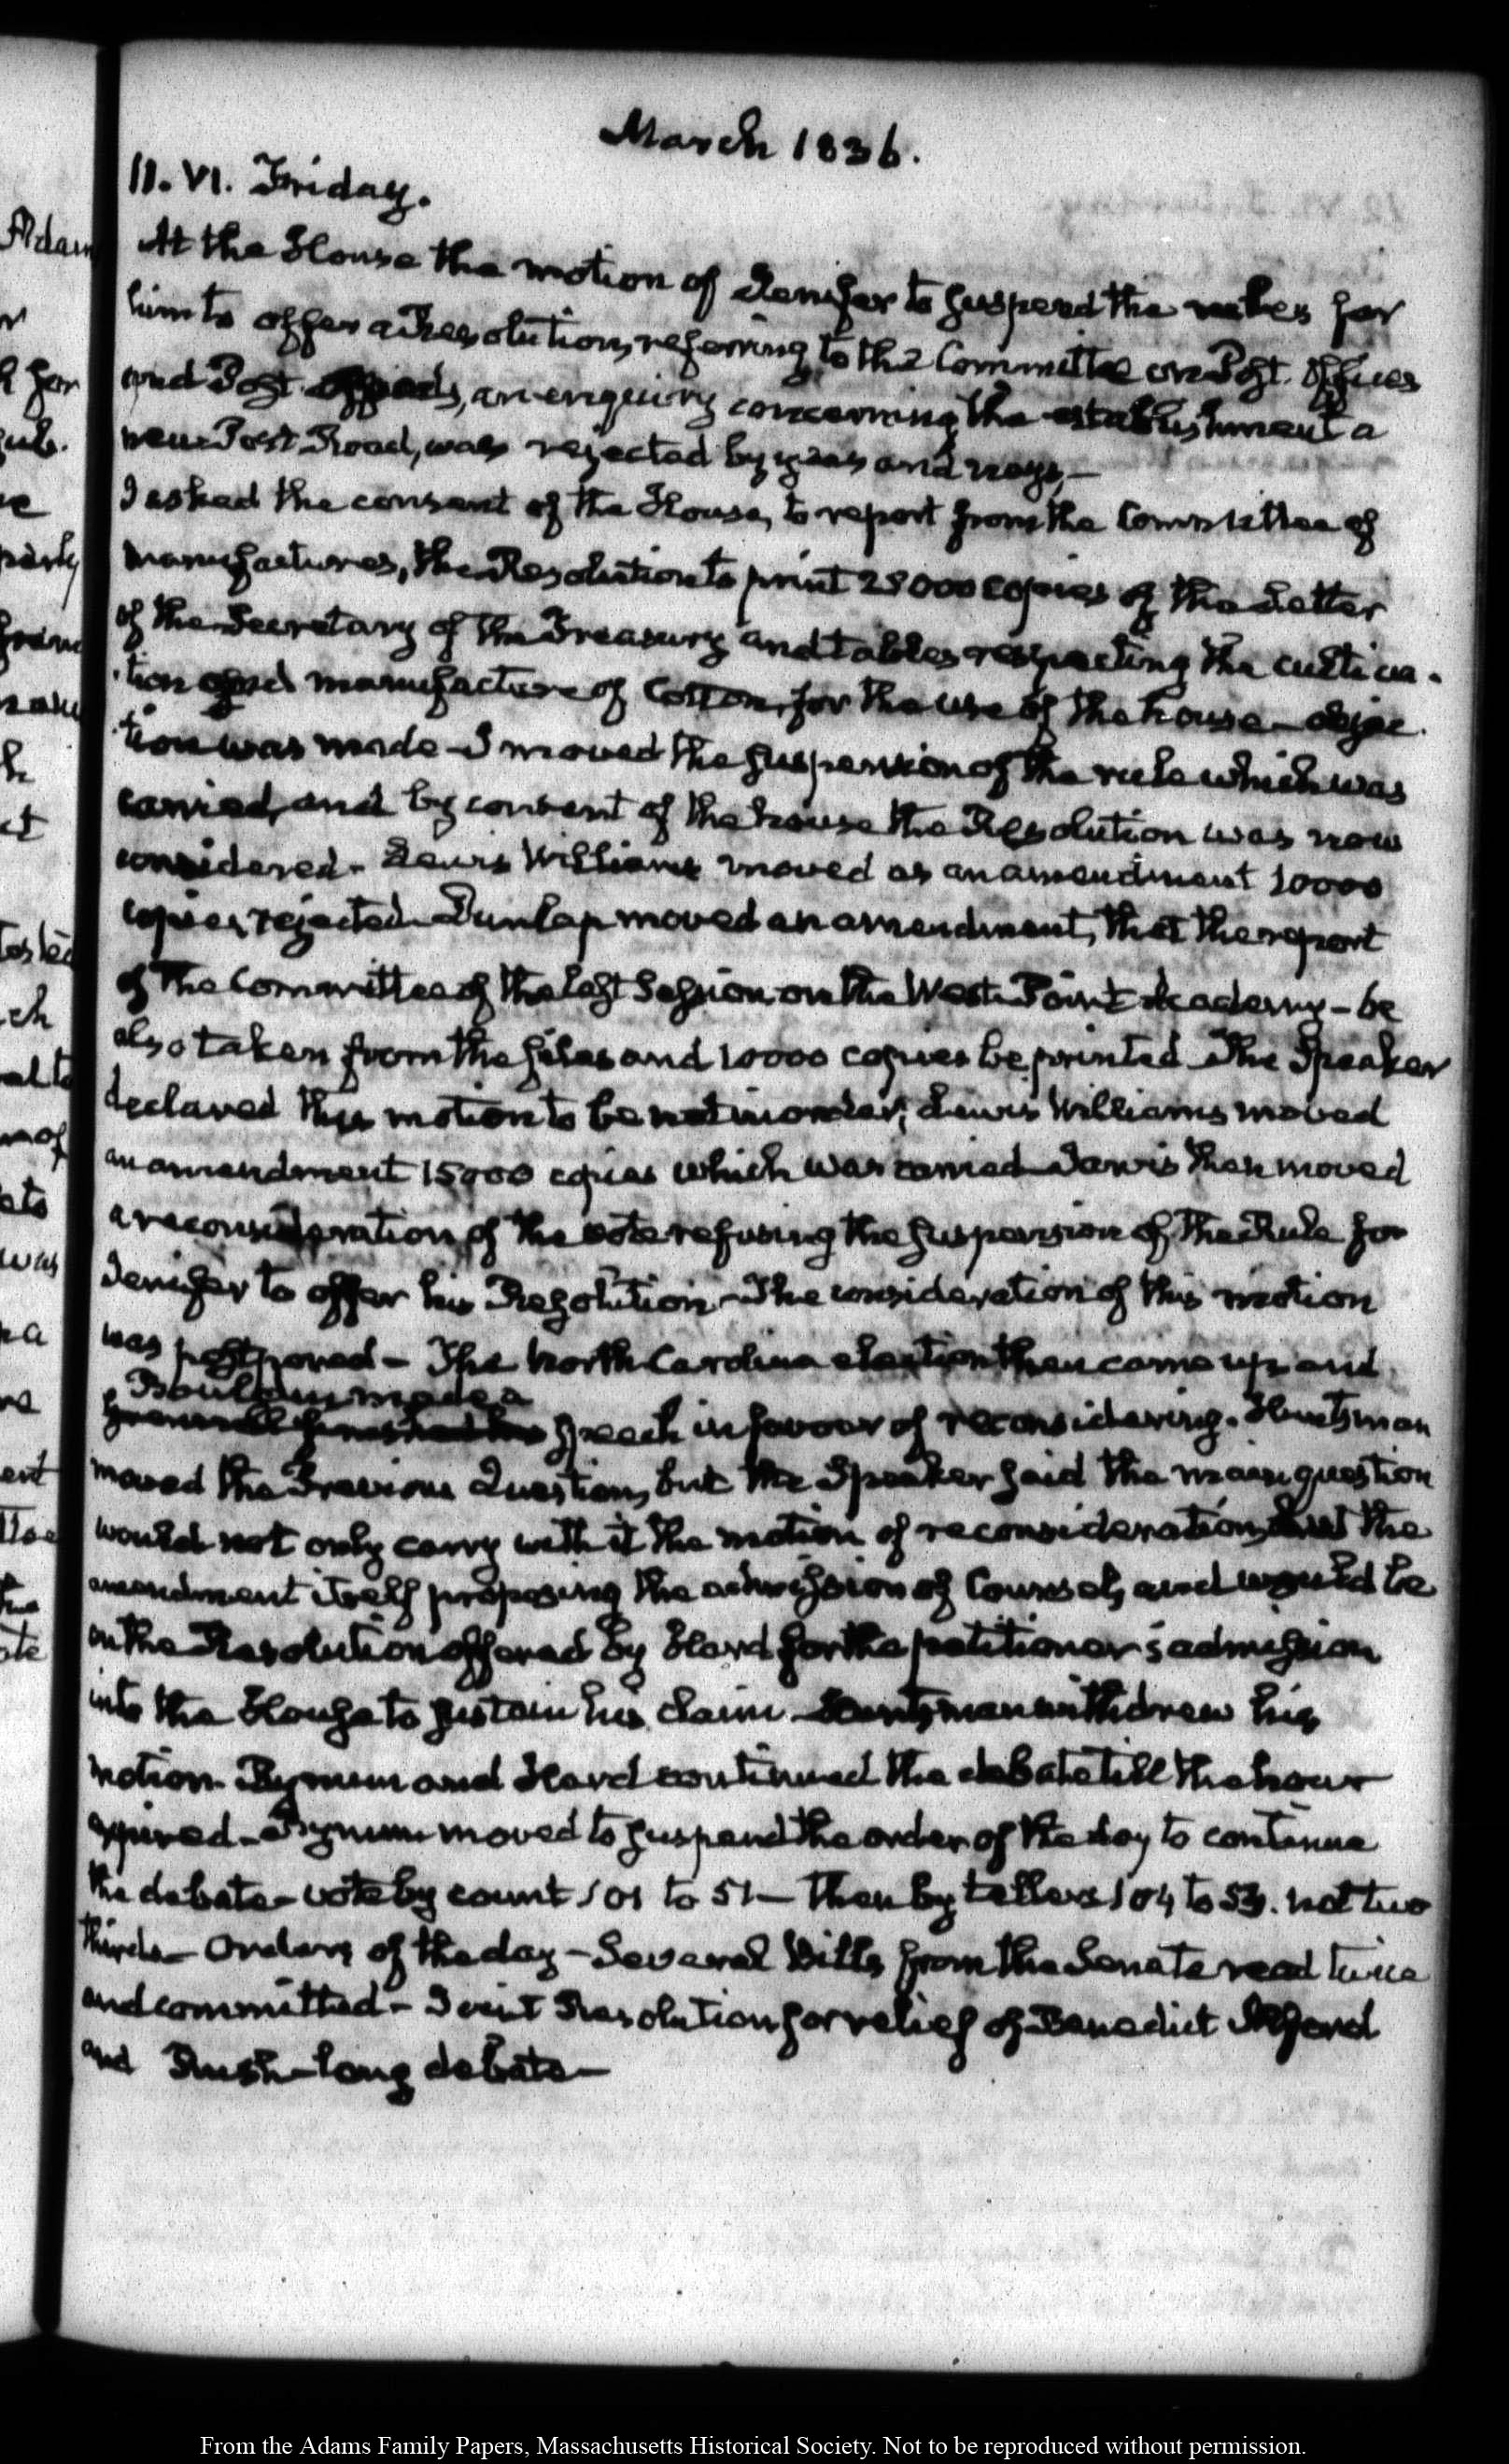 March 1836.
11. VI. Friday.
At the House the motion of Jenifer to suspend the rules for
him to offer a Resolution, referring to the Committee on Post Offices
and Post, an enquiry concerning the establishment a
new Post Road, was rejected by yeas and nays,—
I asked the consent of the House, to report from the Committee of
manufactures, the Resolution to print 25000 copies of the Letter
of the Secretary of the Treasury and tables respecting the cultiva-
tion and manufacture of Cotton, for the use of the house—objec-
tion was made—I moved the suspension of the rule which was
carried, and by consent of the house the Resolution was now
considered—Lewis Williams moved as an amendment 10000
copies, rejected—Dunlap moved an amendment, that the report
of the Committee of the last Session on the West-Point Academy—be
also taken from the files and 10000 copies be printed—The Speaker
declared this motion to be not in order; Lewis Williams moved
an amendment 15000 copies which was carried—Jarvis then moved
a reconsideration of the vote refusing the suspension of the Rule for
Jenifer to offer his Resolution—The consideration of this motion
was postponed—The North Carolina election then came up and
Bouldin made a
speech in favour of reconsidering. Huntsman
moved the Previous Question, but the Speaker said the main question
would not only carry with it the motion of reconsideration, but the
amendment itself proposing the admission of Counsel, and would be
on the Resolution offered by Hard for the petitioner's admission
into the House to sustain his claim—Huntsman withdrew his
motion—Bynum and Hard continued the debate till the hour
expired—Bynum moved to suspend the order of the day to continue
the debate—vote by count 101 to 51—then by tellers 104 to 53. not two
thirds—Orders of the day—Several Bills from the Senate read twice
and committed—Joint Resolution for relief of Benedict Alford
and Brush—long debate—
Adam
r
for
ch
ct
was
From the Adams Family Papers, Massachusetts Historical Society. Not to be reproduced without permission.